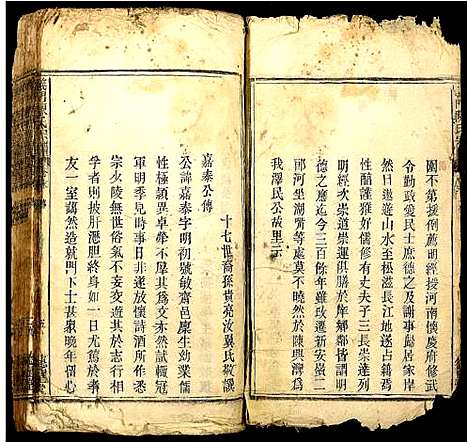 闈不第援例薦明經授河南懷慶府修武
令勤政愛民士庶德之及謝事歸居家岸
一日遨遊山水至松滋長江地遂占焉
性醇謹雅好儒修有丈夫子三長崇達列
明經次崇道崇運俱勝於庠鄉鄰皆謂明
德之應迄今三百餘年雖政遷新安嶺二
邱河坐湖嘴等處要莫不淵然於陳興灣為
我澤民公故里云
十七世裔孫貴亮汝翼氏敬譔
嘉泰公傳
公諱嘉泰字明初號敏齋邑廩生幼業儒
性磊落穎異卓犖不與人同然試輒冠
軍明季兄時事日非遂放懷詩酒所作悉
宗少陵無世俗氣不妄交遊其於志行相
孚者則披肝瀝胆終身如一日尤篤於孝
友一室藹然造就門下士甚衆晚年留心